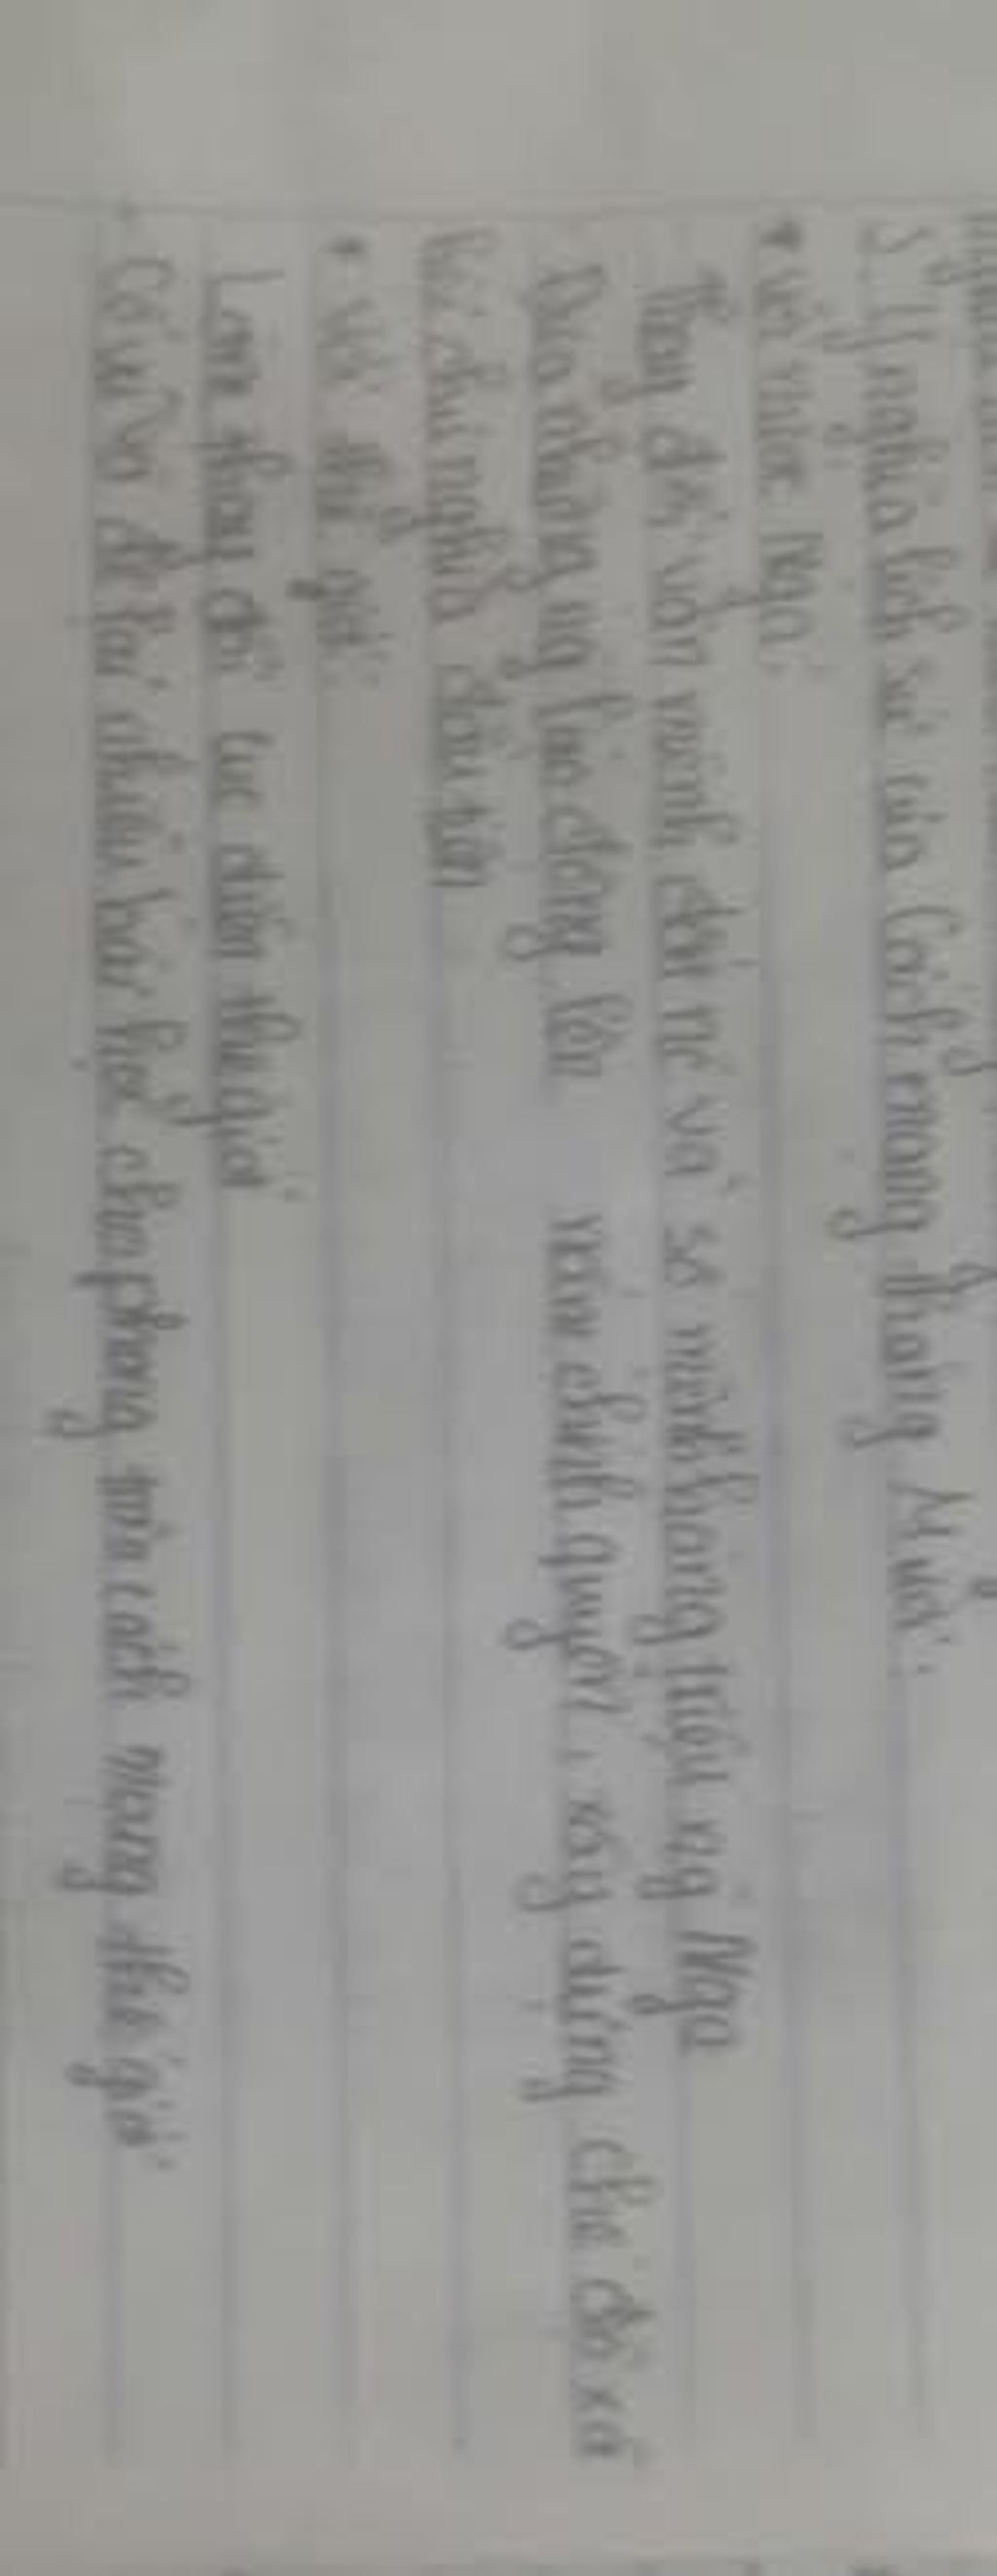 5. Ý nghĩa lịch sử của Cách mạng tháng Mười.
* Với nước Nga:
Thay đổi vận mệnh đất nc và số mệnh hàng triệu ng Nga
Đưa những ng lao động lên nắm chính quyền, xây dựng chế độ xã
hội chủ nghĩa đầu tiên
* Với thế giới:
Làm thay đổi cục diện thế giới
Cổ vũ và để lại nhiều bài học cho phong trào cách mạng thế giới